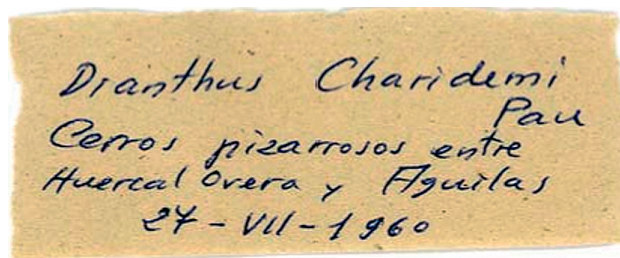 Dianthus Charidemi
Pau
Cerros pizarrosos entre
Huercal Overa y Aguilas
27-VII-1960